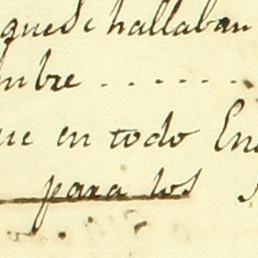 que se hallaban
mbre . . . . . . .
ue en todo En
para los